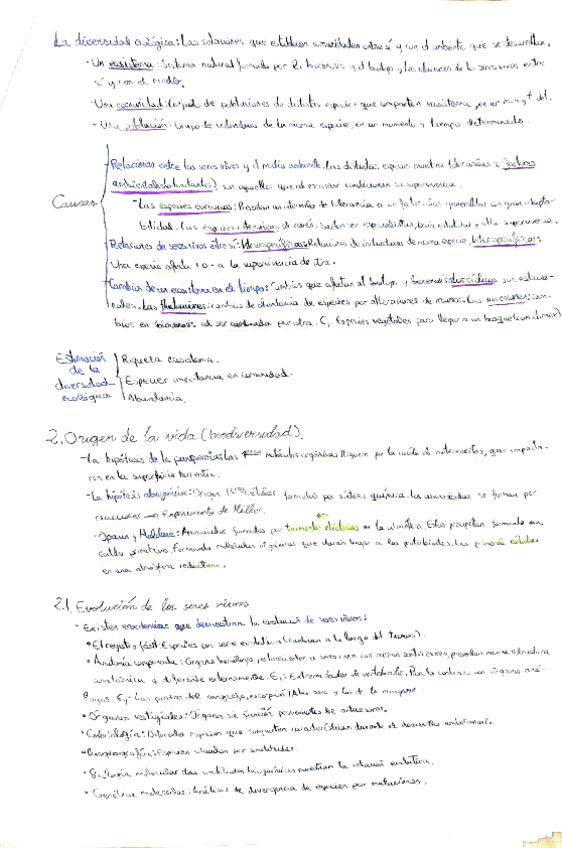 La diversidad ecológica: Las relaciones que establecen comunidades entre sí y con el ambiente que se desarrollan.
- Un ecosistema: Sistema natural formado por la biocenosis y el biotopo, y las relaciones de los seres vivos entre
sí y con el medio.
- Una comunidad: Conjunt de poblaciones de distintas especies que comparten ecosistema, en un m y t det.
- Una población: Grupo de individuos de la misma especie, en un momento y tiempo determinado.
Causas
Relaciones entre los seres vivos y el medio ambiente. Las distintas especies muestran tolerancias a factores
ambientales (limitantes) son aquellos que al escasear condicionan su supervivencia.
- Las especies eurioicas: Presentan un intervalo de tolerancia a un factor
bilidad. Las especies estenoicas, al revés. Suelen ser especialistas, supervivencia.
Relaciones de seres vivos entre sí: Intraespecíficas: Relaciones de individuos de misma especie, Interespecíficas:
Una especie afecta + o - a la supervivencia de otra.
Cambios de un ecosistema en el tiempo: Cambios que afectan al biotopo y biocenosis: Los cíclicos son estacio-
nales. Las fluctuaciones: cambios de abundancia de especies por alteraciones de Las sucesiones: cam-
bios en biocenosis al ser por otra. Ej Especies vegetales para llegar a un bosque (con clímax)
Estimación de la diversidad ecológica
Riqueza
Especies importancia en comunidad.
Abundancia.
2. Origen de la vida (biodiversidad).
- La hipótesis de la panspermia: Las moléculas orgánicas llegaron por la caída de meteoritos, que impacta-
ron en la superficie terrestre.
- La hipótesis abiogénesis: Origen células formadas por síntesis química. Los aminoácidos se forman por
reacciones → Experimento de Miller.
- Oparin y Haldane: Aminoácidos formados por tormentas eléctricas en la atmósfera. Estos formando un
caldo primitivo. Formando moléculas orgánicas que darán lugar a los protobiontes. Las primeras células
en una atmósfera reductora.
2.1. Evolución de los seres vivos
- Existen evidencias que demuestran la evolución de seres vivos:
• El registro fósil: Especies con serie evolutiva (cambian a lo largo del tiempo).
• Anatomía comparada: Órganos homólogos, mismos antecesores, presentan misma estructura
anatómica y diferente externamente. Ej: Extremidades de vertebrados. Por lo contrario, los órganos aná-
logos. Ej: Las pinzas del cangrejo, escorpión / Alas
• Órganos vestigiales: Órganos sin función provenientes de antecesores.
• Embriología: Distintas especies que comparten características durante el desarrollo embrionario.
• Biogeografía: Especies
• Biología molecular: Las similitudes bioquímicas muestran la relación evolutiva.
• Genética molecular: Análisis de divergencia de especies por mutaciones.